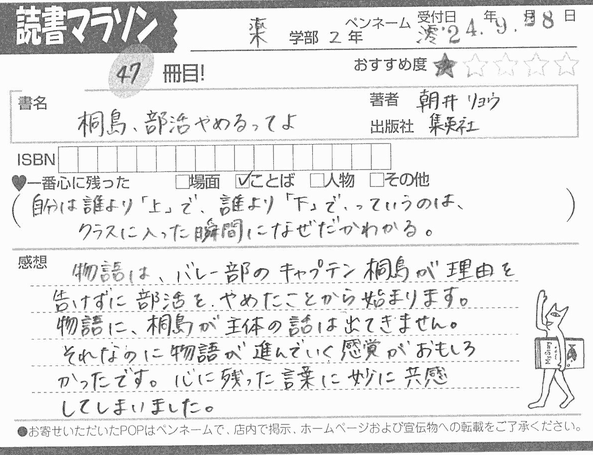 読書マラソン
薬 学部 2年 ペンネーム 澪 受付日 '24年.9月.28日
47 冊目! おすすめ度 ★☆☆☆☆
書名 桐島、部活やめるってよ
著者 朝井リョウ
出版社 集英社
ISBN
♥一番心に残った □場面 ☑ことば □人物 □その他
(自分は誰より「上」で、誰より「下」で、っていうのは、
クラスに入った瞬間になぜだかわかる。)
感想 物語は、バレー部のキャプテン桐島が理由を
告げずに部活を、やめたことから始まります。
物語に、桐島が主体の話は出てきません。
それなのに物語が進んでいく感覚がおもしろ
かったです。心に残った言葉に妙に共感
してしまいました。
●お寄せいただいたPOPはペンネームで、店内で掲示、ホームページおよび宣伝物への転載をご了承ください。